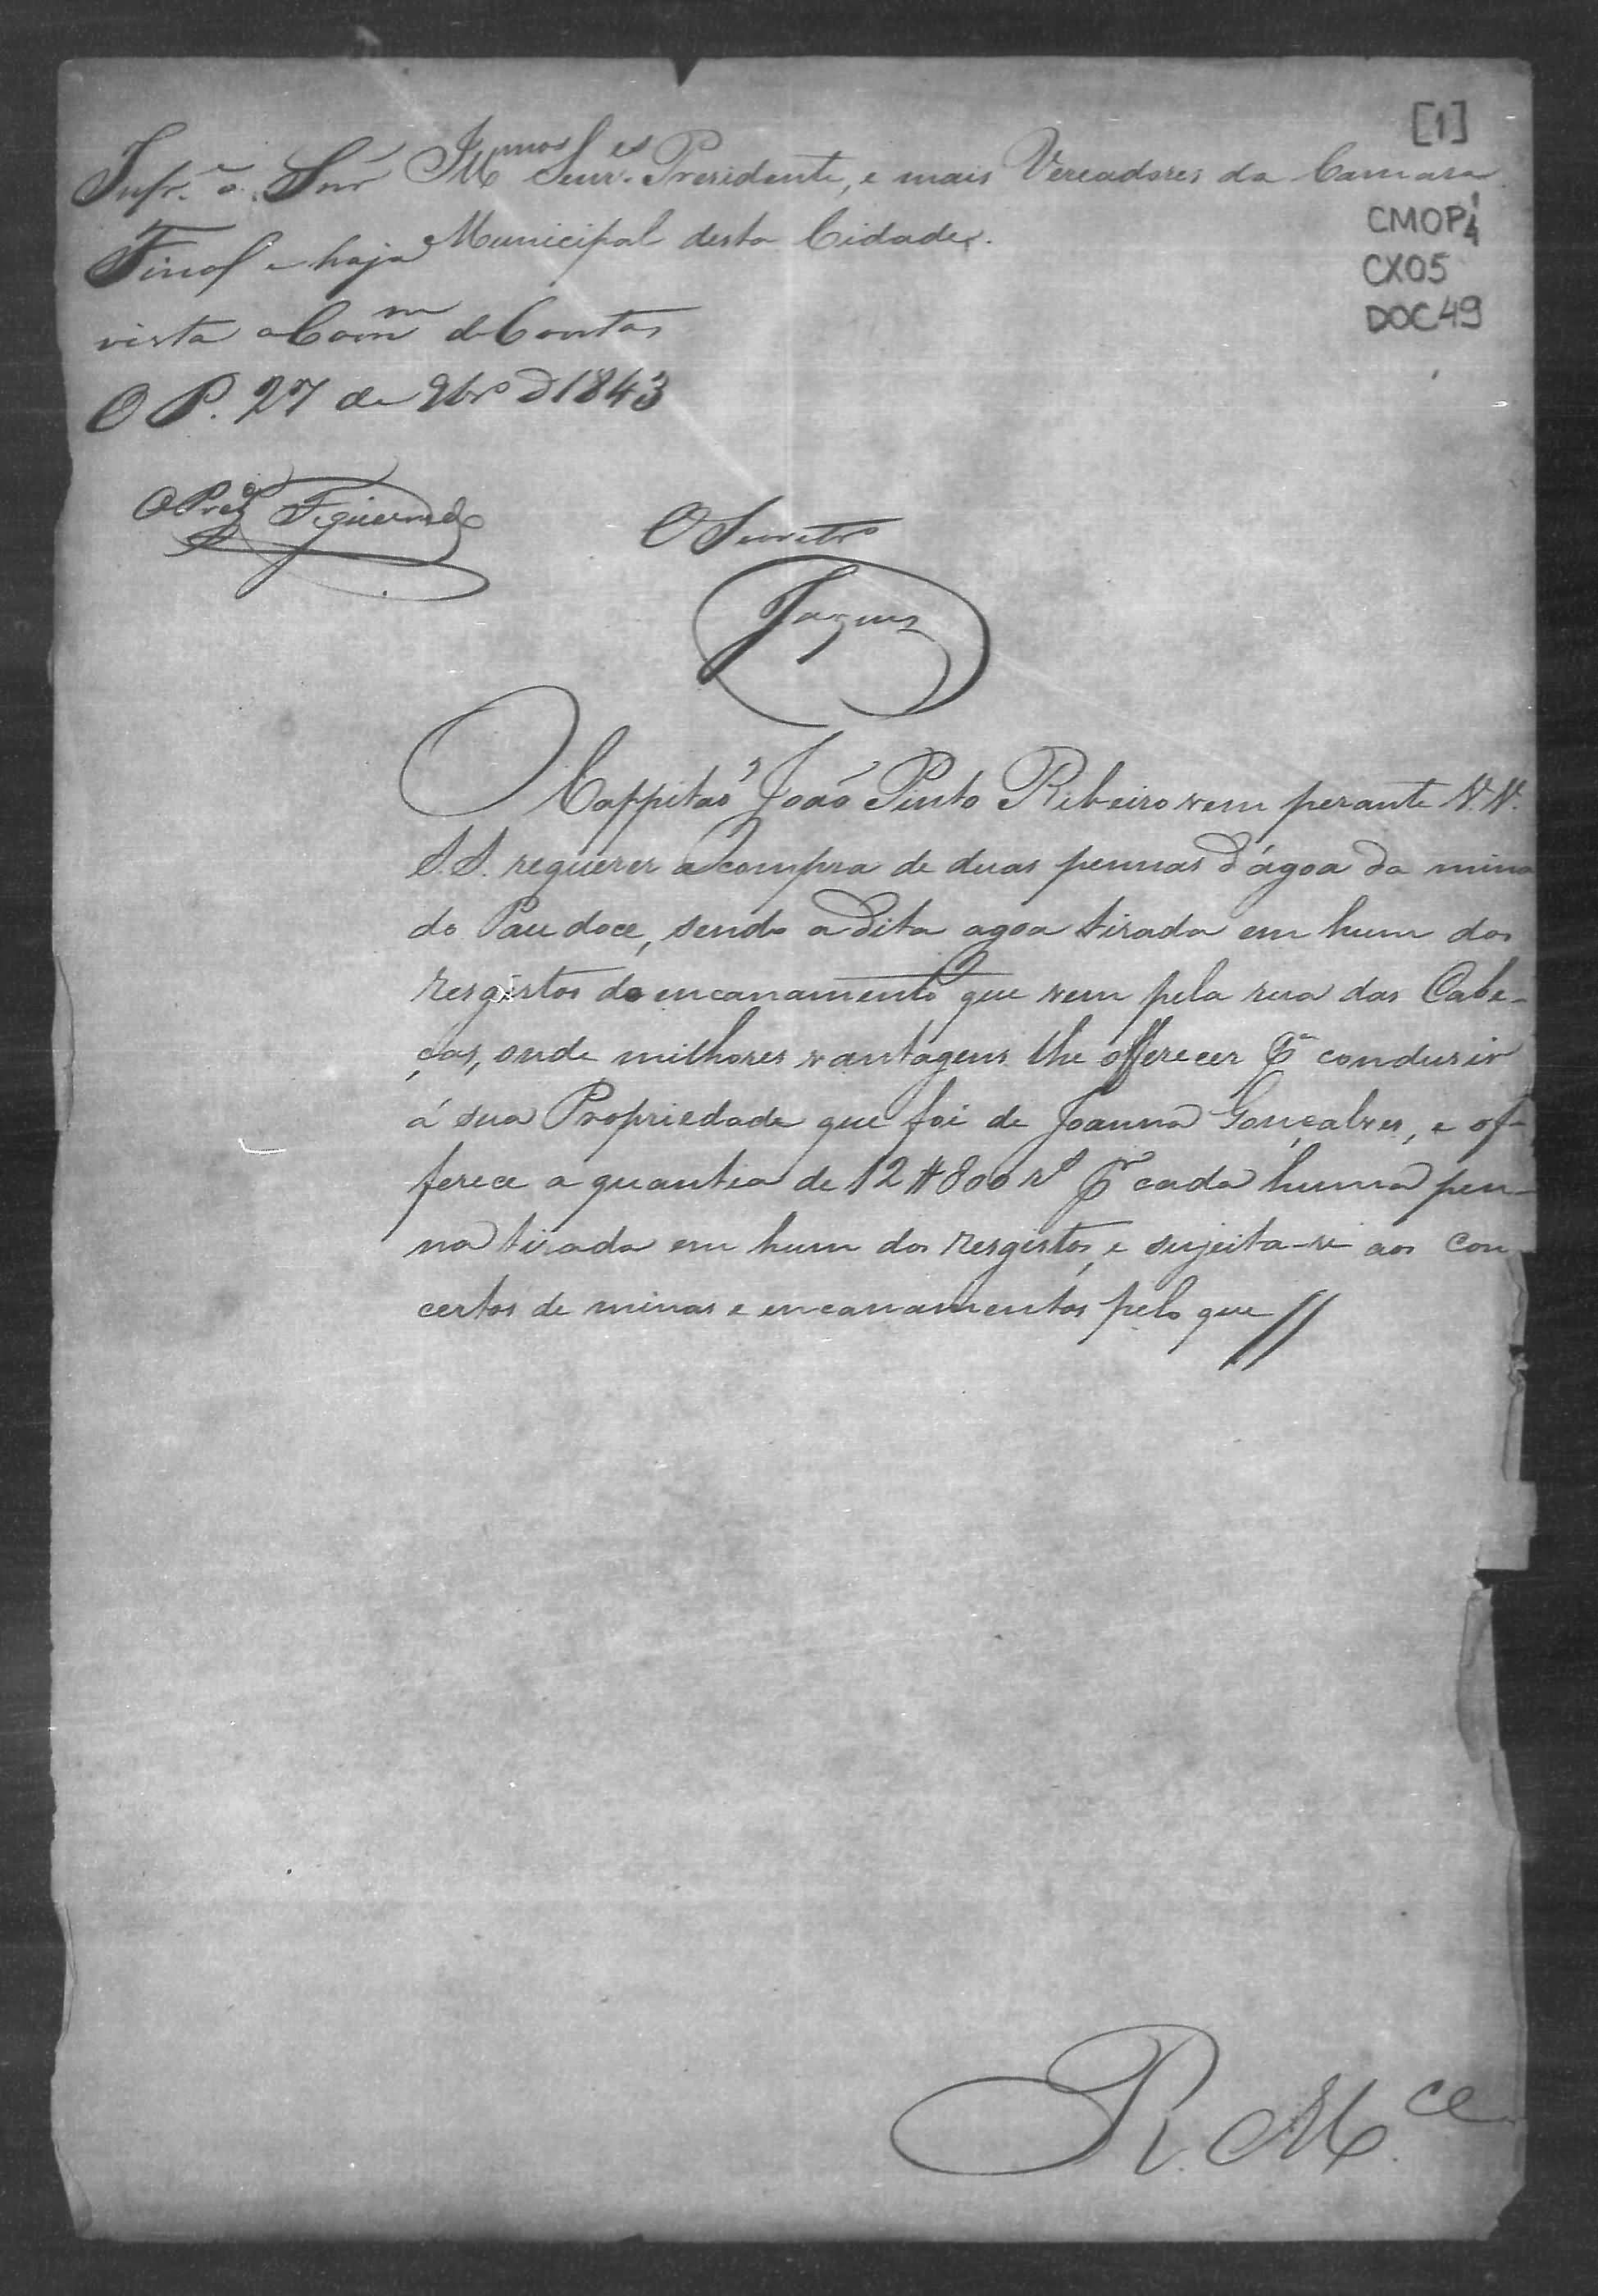 [1]
Ill.mos Senr.es Presidente, e mais Vereadores da Camara
Municipal desta Cidade.
CMOP
CX05
DOC49
Infr.e o Snr
Fiscal e haja
vista a Com.m de Contas
O P. 27 de 9br.o d 1843
O Prez.e Figueiredo
O Secretr.o
O Cappitaõ Joaõ Pinto Ribeiro vem perante V.V.
S.S. requerer a compra de duas pennas d'ágoa da mina
do Pau doce, sendo a dita agoa tirada em hum dos
resgistos do encanamento que vem pela rua das Cabe-
ças, onde milhores vantagens lhe offerecer p.a condusir
á sua Propriedade que foi de Joanna Gonçalves, e of-
ferece a quantia de 12$800 r.s p.r cada huma pen-
na tirada em hum dos resgistos, e sujeita-se aos con
certos de minas e encanamentos pelo que //
R. M.ce